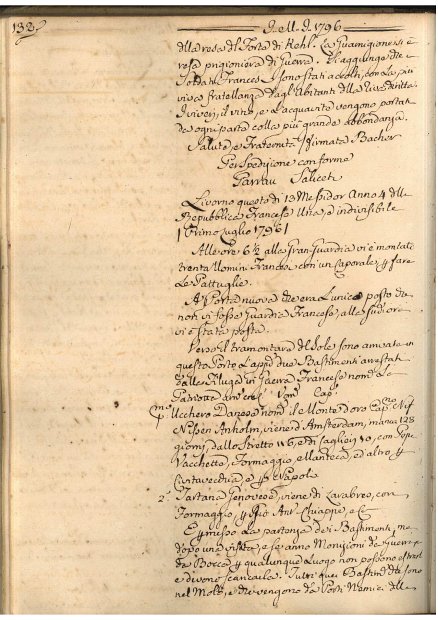 138
1796
della resa del Forte di Kehl. La Guarnigione si è
resa prigioniera di Guerra. Si aggiunge che i
Soldati Francesi sono stati accolti, con la più
viva fratellanza dagl'Abitanti della Riva diritta.
I viveri, il vino, e l'acquavita vengono portati
da ogni parte colla più grande abbondanza.
Salute, e Fraternità / firmata Bacher
Per Spedizione conforme
Garrau Saliceti
Livorno questo dì 13 Messidor Anno 4 della
Repubblica Francese Una, e indivisibile
/ Primo Luglio 1796 /
Alle ore 6½ alla Gran Guardia vi è montati
trenta Uomini Francesi con un Caporale, p fare
Le Pattuglie.
A Porta nuova che era l'unico posto che
non vi fosse Guardia Francese, alle
vi è stata posta.
Verso il tramontare del Sole sono arrivati in
questo Porto due Bastimenti arrestati
dalla Filuga in Guerra Francese nom.
Ucchero Danese nom. il Monte d'oro Cap.no
Anholm, viene d'Amsterdam, manca 128
giorni, dallo Stretto 16, e di Cagliari 10, con
Vacchette, Formaggio, e Manteca, ed altro p
Civitavecchia e p Napoli
2. Tartana Genovese, viene di con
Formaggio, p Chiappe, e C
È permesso La partenza dei Bastimenti, ma
dopo una visita, e se anno Monizioni da Guerra
da Bocca p qualunque Luogo non possono
e devono scaricarle. Tutti quei Bastim.ti che sono
nel Molo, e che vengono da Porti Nemici alla